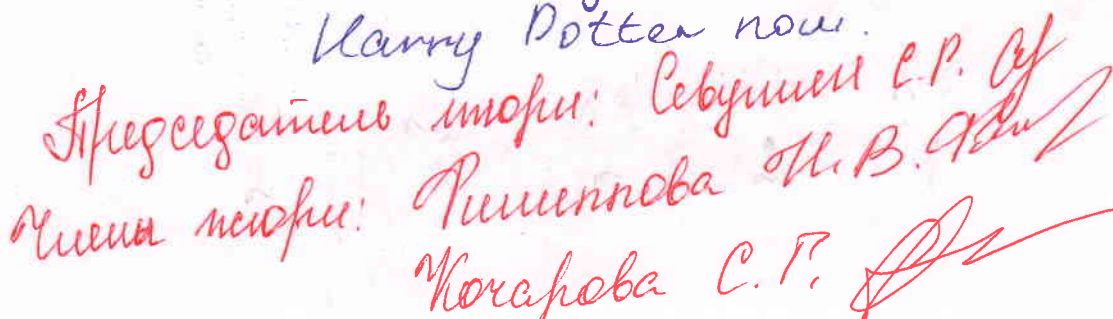 Harry Potter now.
Председатель жюри: Севумян С.Р.
Члены жюри: Филиппова Н.В.
Кочарова С.Г.